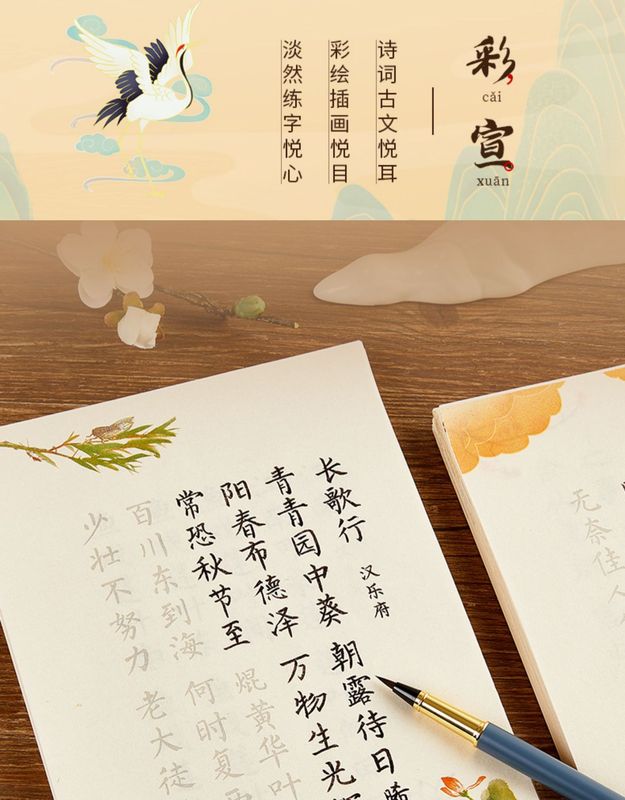 彩宣
cǎi
xuān
诗词古文悦耳
彩绘插画悦目
淡然练字悦心
长歌行 汉乐府
青青园中葵 朝露待日晞
阳春布德泽 万物生光
常恐秋节至 焜黄华叶
百川东到海 何时复
少壮不努力 老大徒
无奈佳